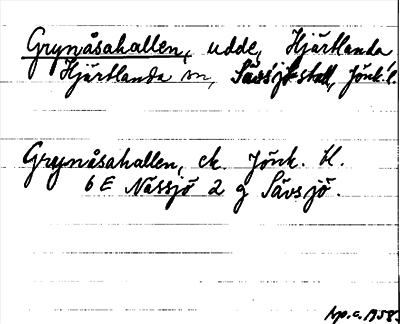 Grynåsahallen, udde, Hjärtlanda
Hjärtlanda sn, Sävsjö stad, Jönk. l.
Grynåsahallen, ek. Jönk. bl.
6 E Nässjö 2 g Sävsjö.
1958